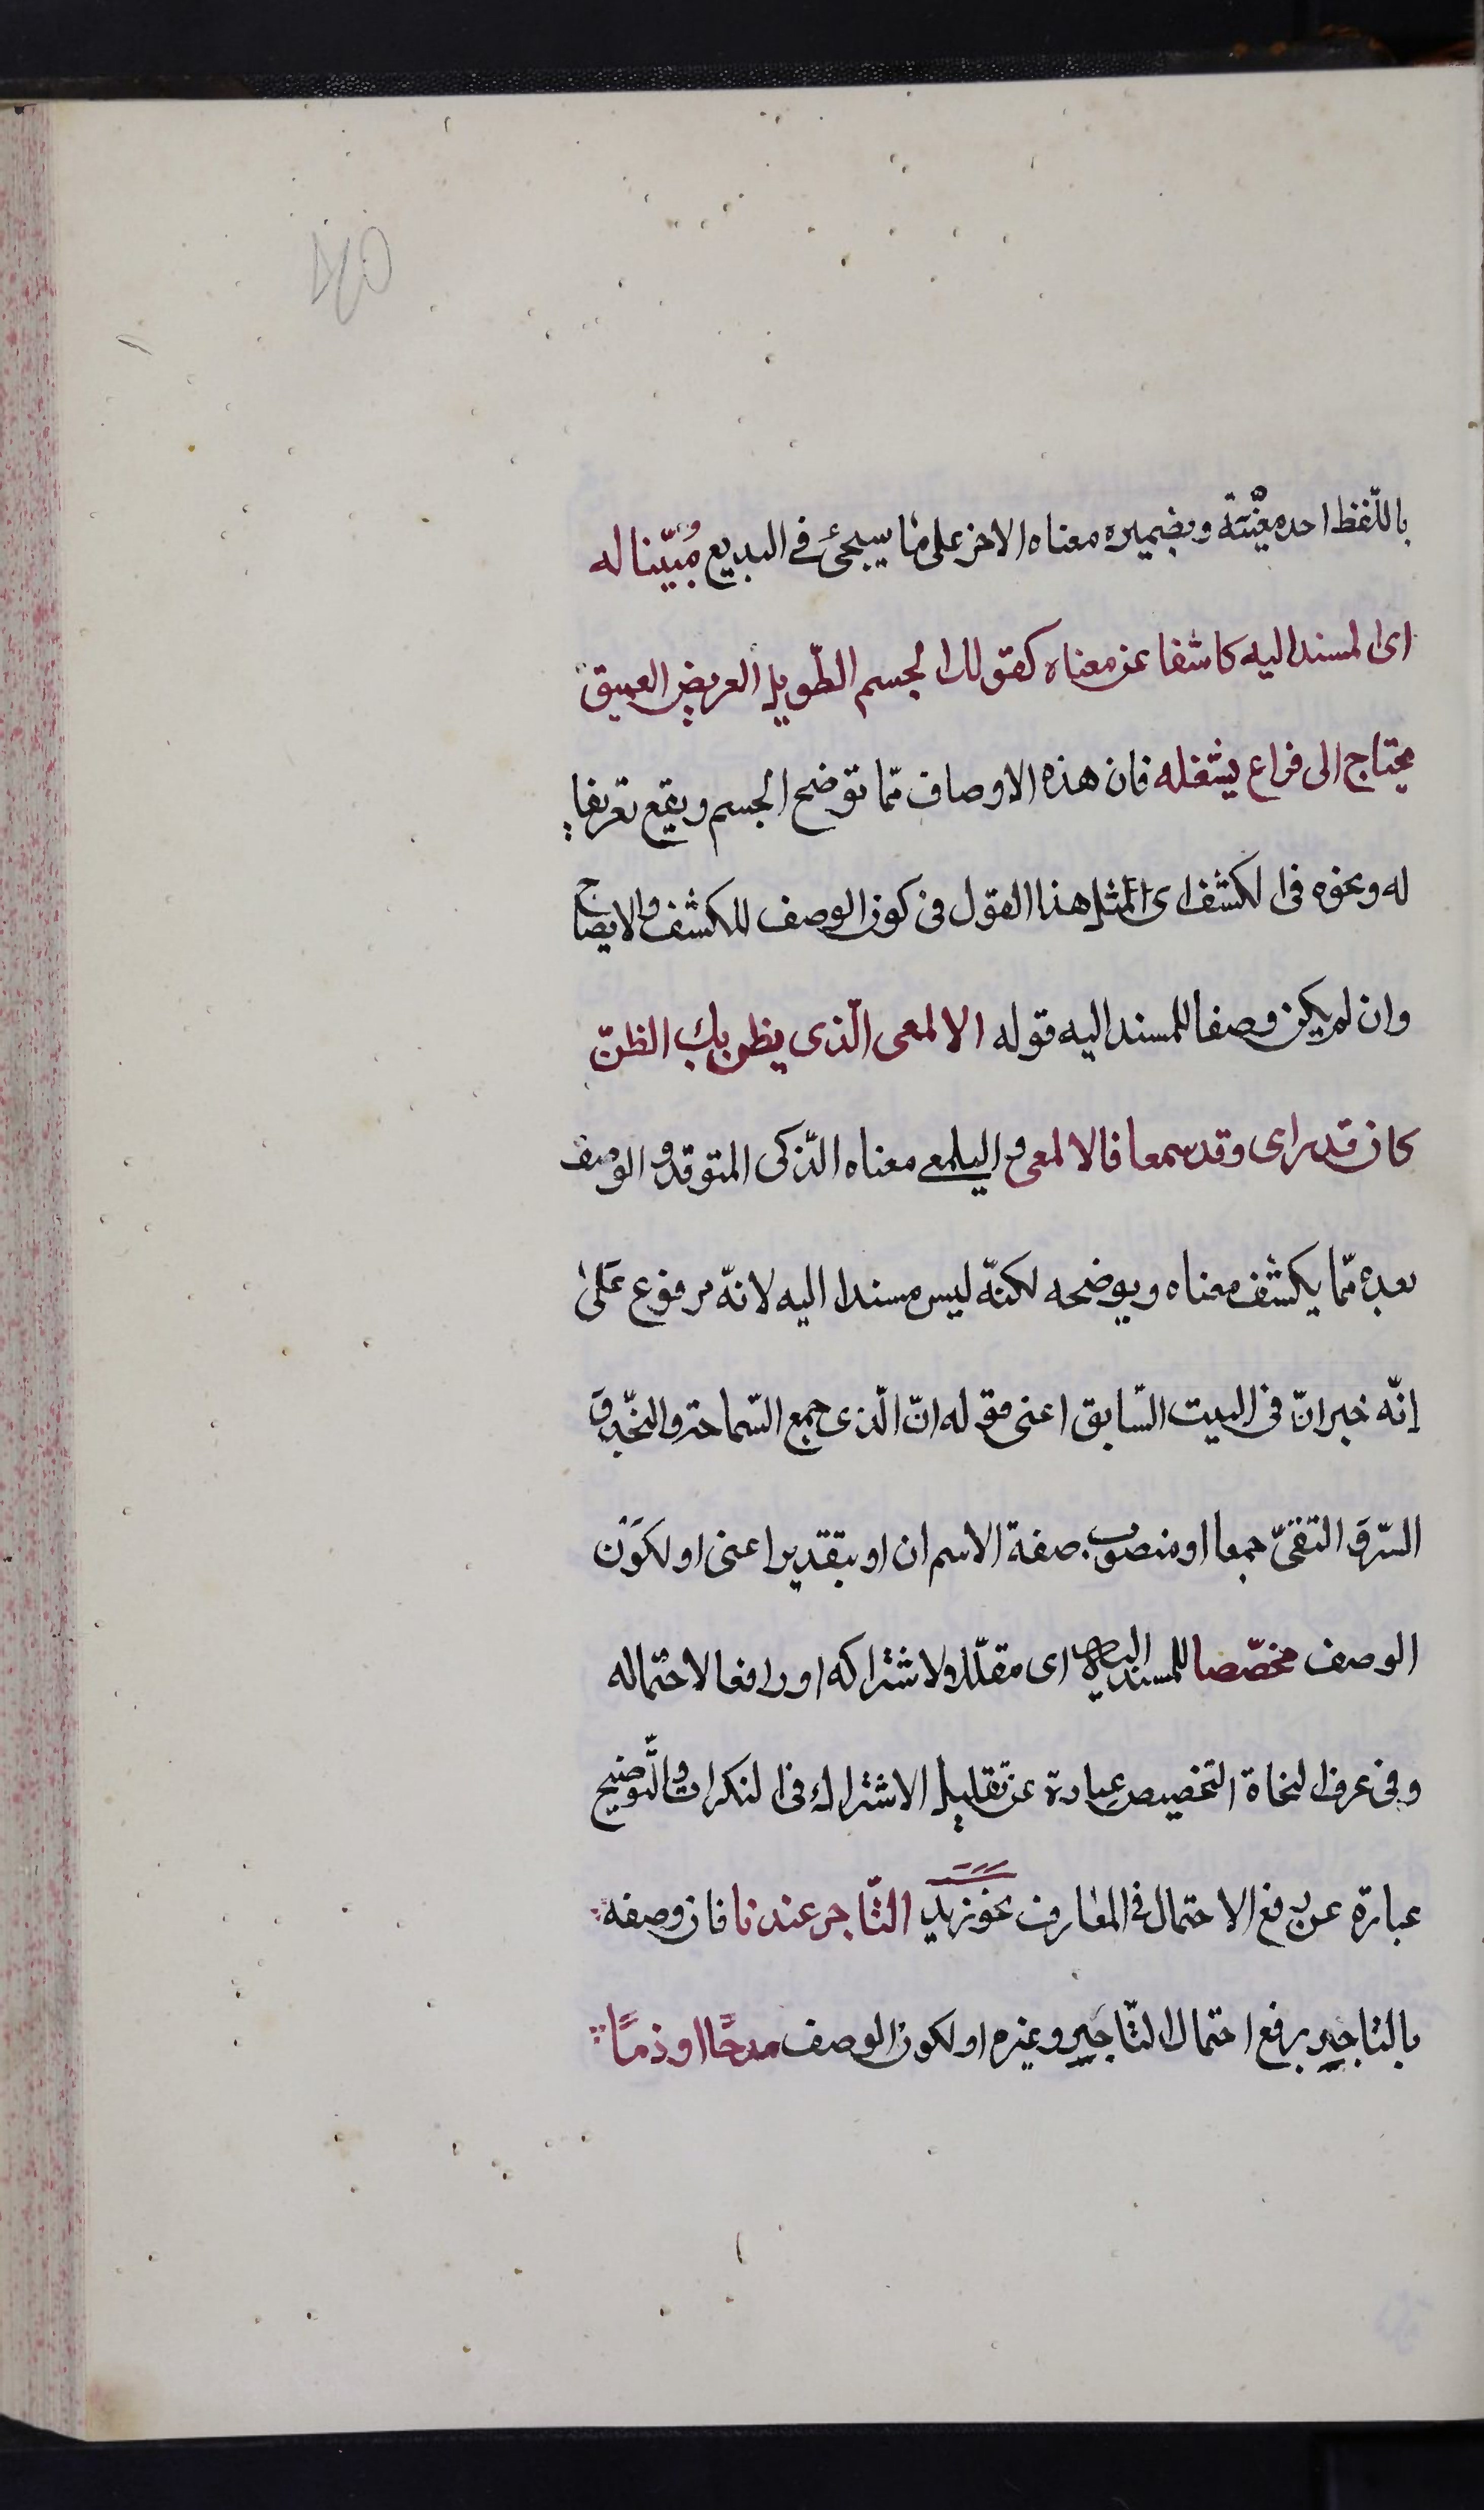 باللّفظ احد معنيَيه وبضميره معناه الاخر على ما سيجئ فى البديع مُبيّنا له
اى المسند اليه كاشفا عن معناه كقولك الجسم الطّويل العريض العميق
يحتاج الى فراغ يشغله فان هذه الاوصاف ممّا توضح الجسم ويقع تعريفا
له ونحوه فى الكشف اى مثل هذا القول فى كون الوصف للكشف والايضاح
وان لم يكن وصفا للمسند اليه قوله الالمعى الّذى يظن بك الظنّ
كان قد راى وقد سمعا فالالمعى واليلمعى معناه الذّكى المتوقد والوصف
بعده ممّا يكشف معناه ويوضحه لكنّه ليس مسندا اليه لانّه مرفوع على
انّه خبر انّ فى البيت السّابق اعنى قوله انّ الّذى جمع السّماحة والنّجدة و
البرّ والتقىّ جمعا او منصوب صفة الاسم ان او بتقدير اعنى او لكون
الوصف مخصّصا للمسند اليه اى مقلّلا ولاشتراكه او رافعا لاحتماله
وفى عرف النحاة التخصيص عبارة عن تقليل الاشتراك فى النكرات والتّوضيح
عبارة عن رفع الاحتمال فى المعارف نحو زيد التّاجر عندنا فان وصفه
بالتاجر يرفع احتمال التّاجر وغيره او لكون الوصف مدحًا او ذمًا